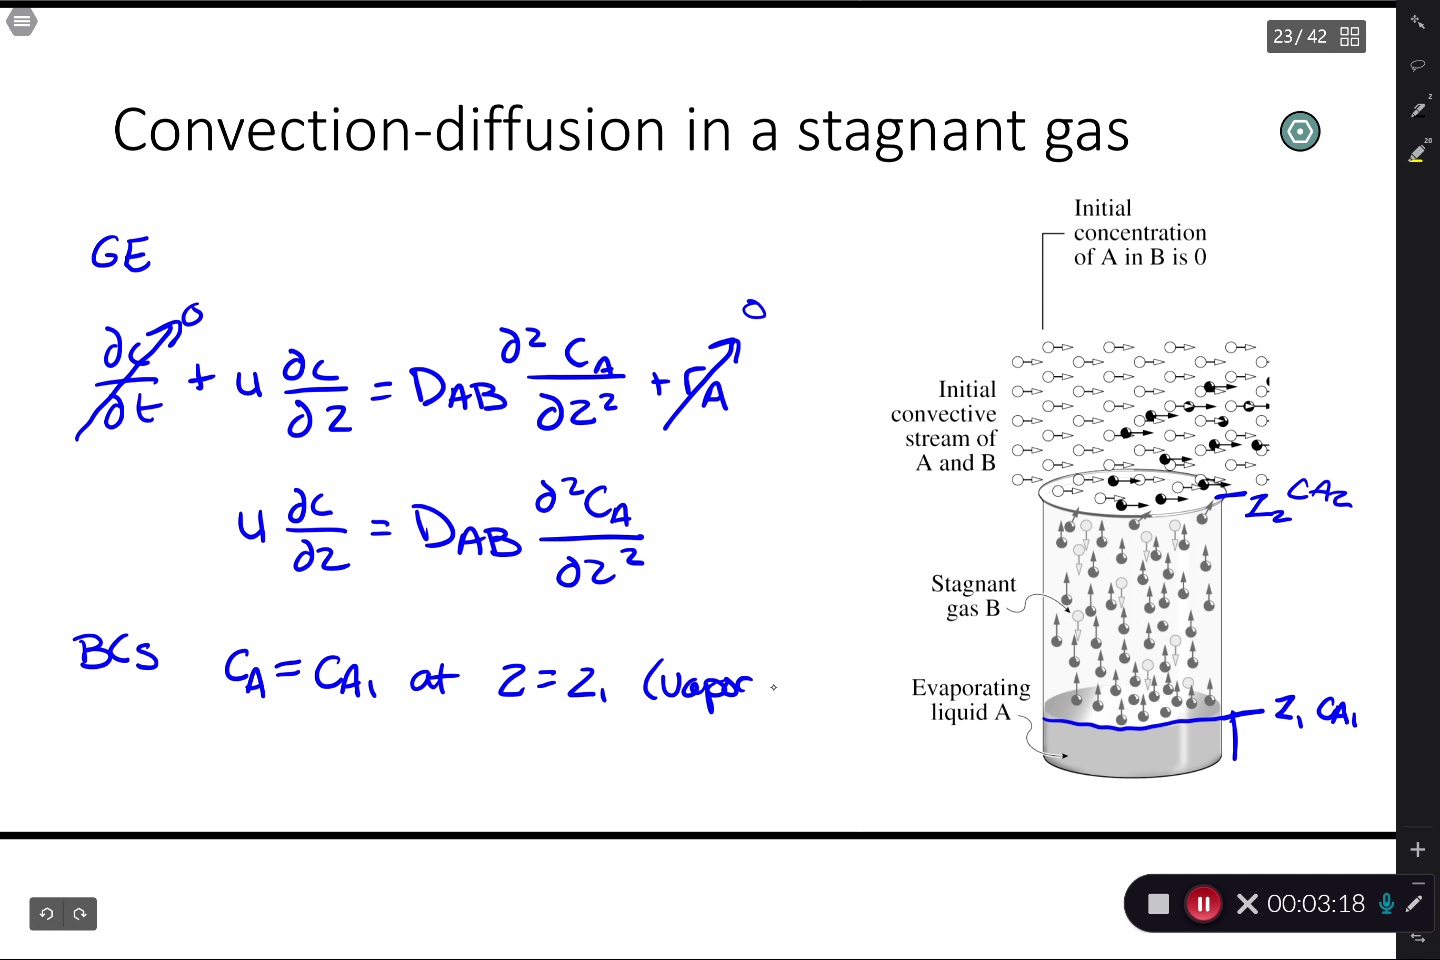 23 / 42
Convection-diffusion in a stagnant gas
GE
∂c/∂t → 0 + u ∂c/∂z = D_AB ∂²C_A/∂z² + r_A → 0
u ∂c/∂z = D_AB ∂²C_A/∂z²
BCs C_A = C_A1 at z = z1 (vapor
Initial
concentration
of A in B is 0
Initial
convective
stream of
A and B
z2 CA2
Stagnant
gas B
Evaporating
liquid A
z1 CA1
2
20
00:03:18